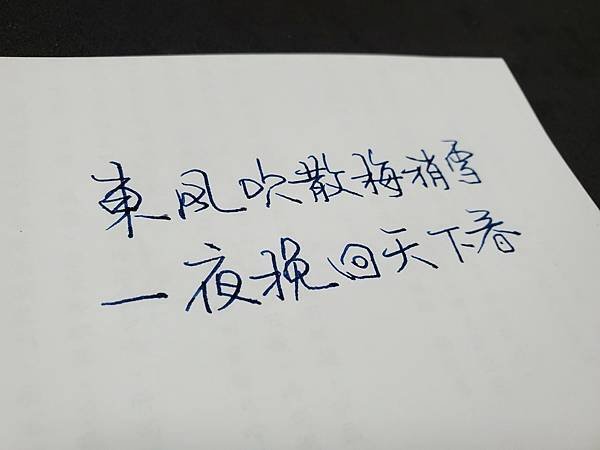 東風吹散梅梢雪
一夜挽回天下春